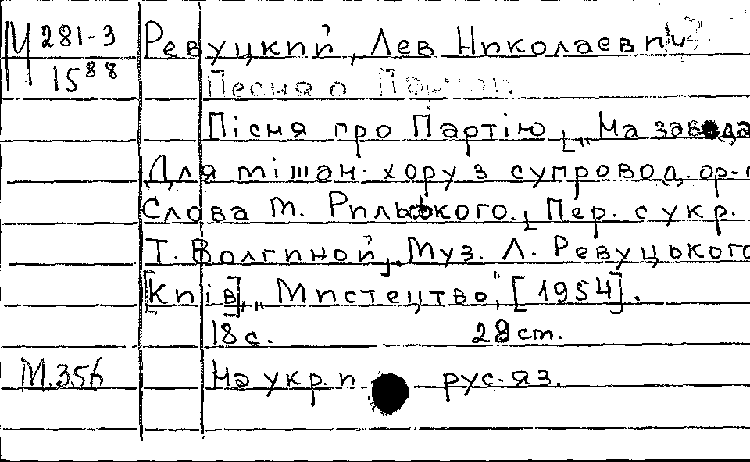 М 281-3 Ревуцкий, Лев Николаевич
15 88 Песня о Партии
Пісня про Партію, „На завода
Для мішан. хору з супровод. ор-
Слова М. Рильського. Пер. с укр.
Т. Волгиной, Муз. Л. Ревуцького
[Київ], „Мистецтво", [1954].
18 с. 28 cm.
М.356 На укр. и рус. яз.